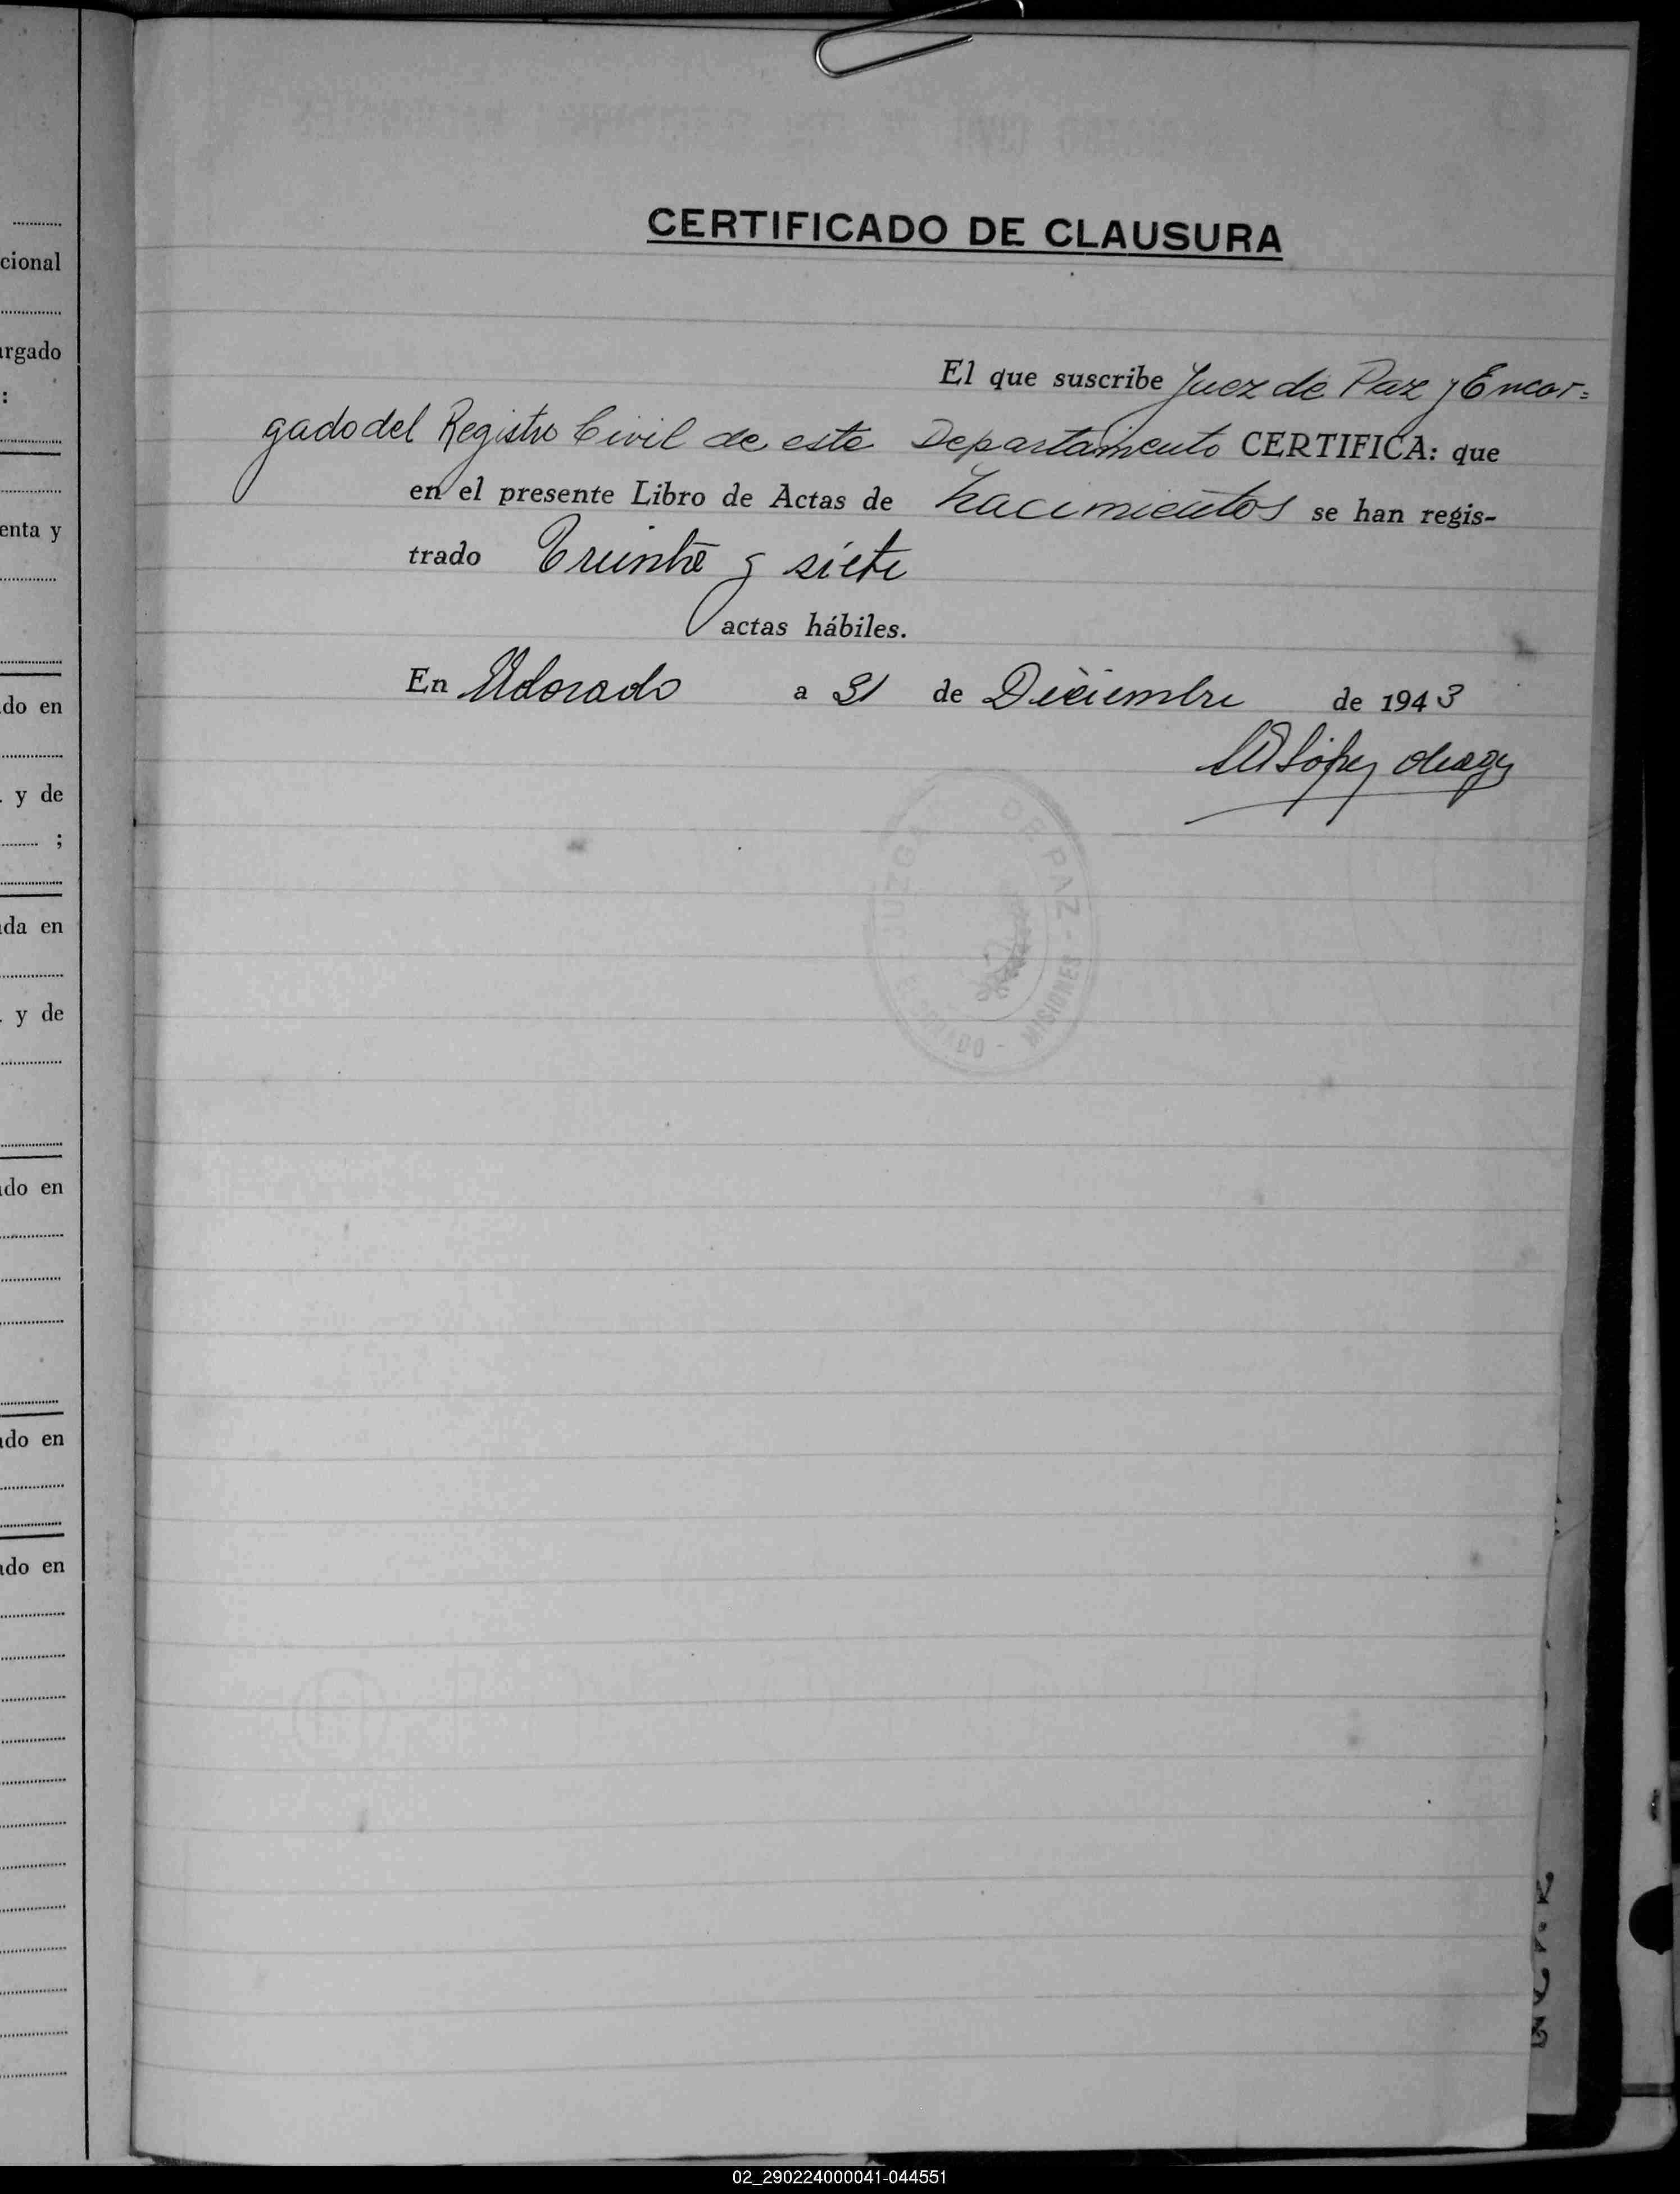 CERTIFICADO DE CLAUSURA
El que suscribe Juez de Paz y Encar=
gado del Registro Civil de este Departamento CERTIFICA: que
en el presente Libro de Actas de nacimientos se han regis-
trado Treinta y siete
actas hábiles.
En Eldorado a 31 de Diciembre de 1943
López
JUZGA DE PAZ - MISIONES -
cional
argado
:
enta y
do en
y de
;
da en
y de
do en
do en
do en
02_290224000041-044551